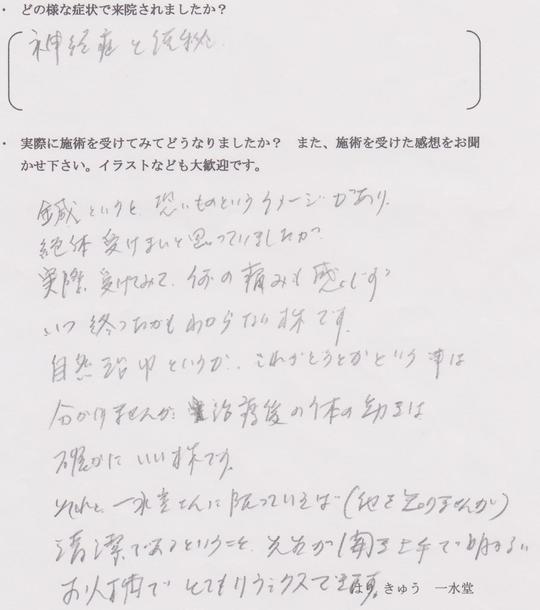 ・ どの様な症状で来院されましたか？
神経症と便秘
・ 実際に施術を受けてみてどうなりましたか？ また、施術を受けた感想をお聞
かせ下さい。イラストなども大歓迎です。
鍼というと恐いものというイメージがあり、
絶体受けまいと思っていましたが
実際、受けてみて、何の痛みも感じず
いつ終ったかもわからない様です。
自然治ゆというか、これがどうとかという事は
分かりませんが、治療後の体の動きは
確かにいい様です。
それと、一水堂さんに限っていえば（他を知りませんが）
清潔であるということ、先生が 上手で明るい
お人柄で とてもリラックスで
はり きゅう 一水堂